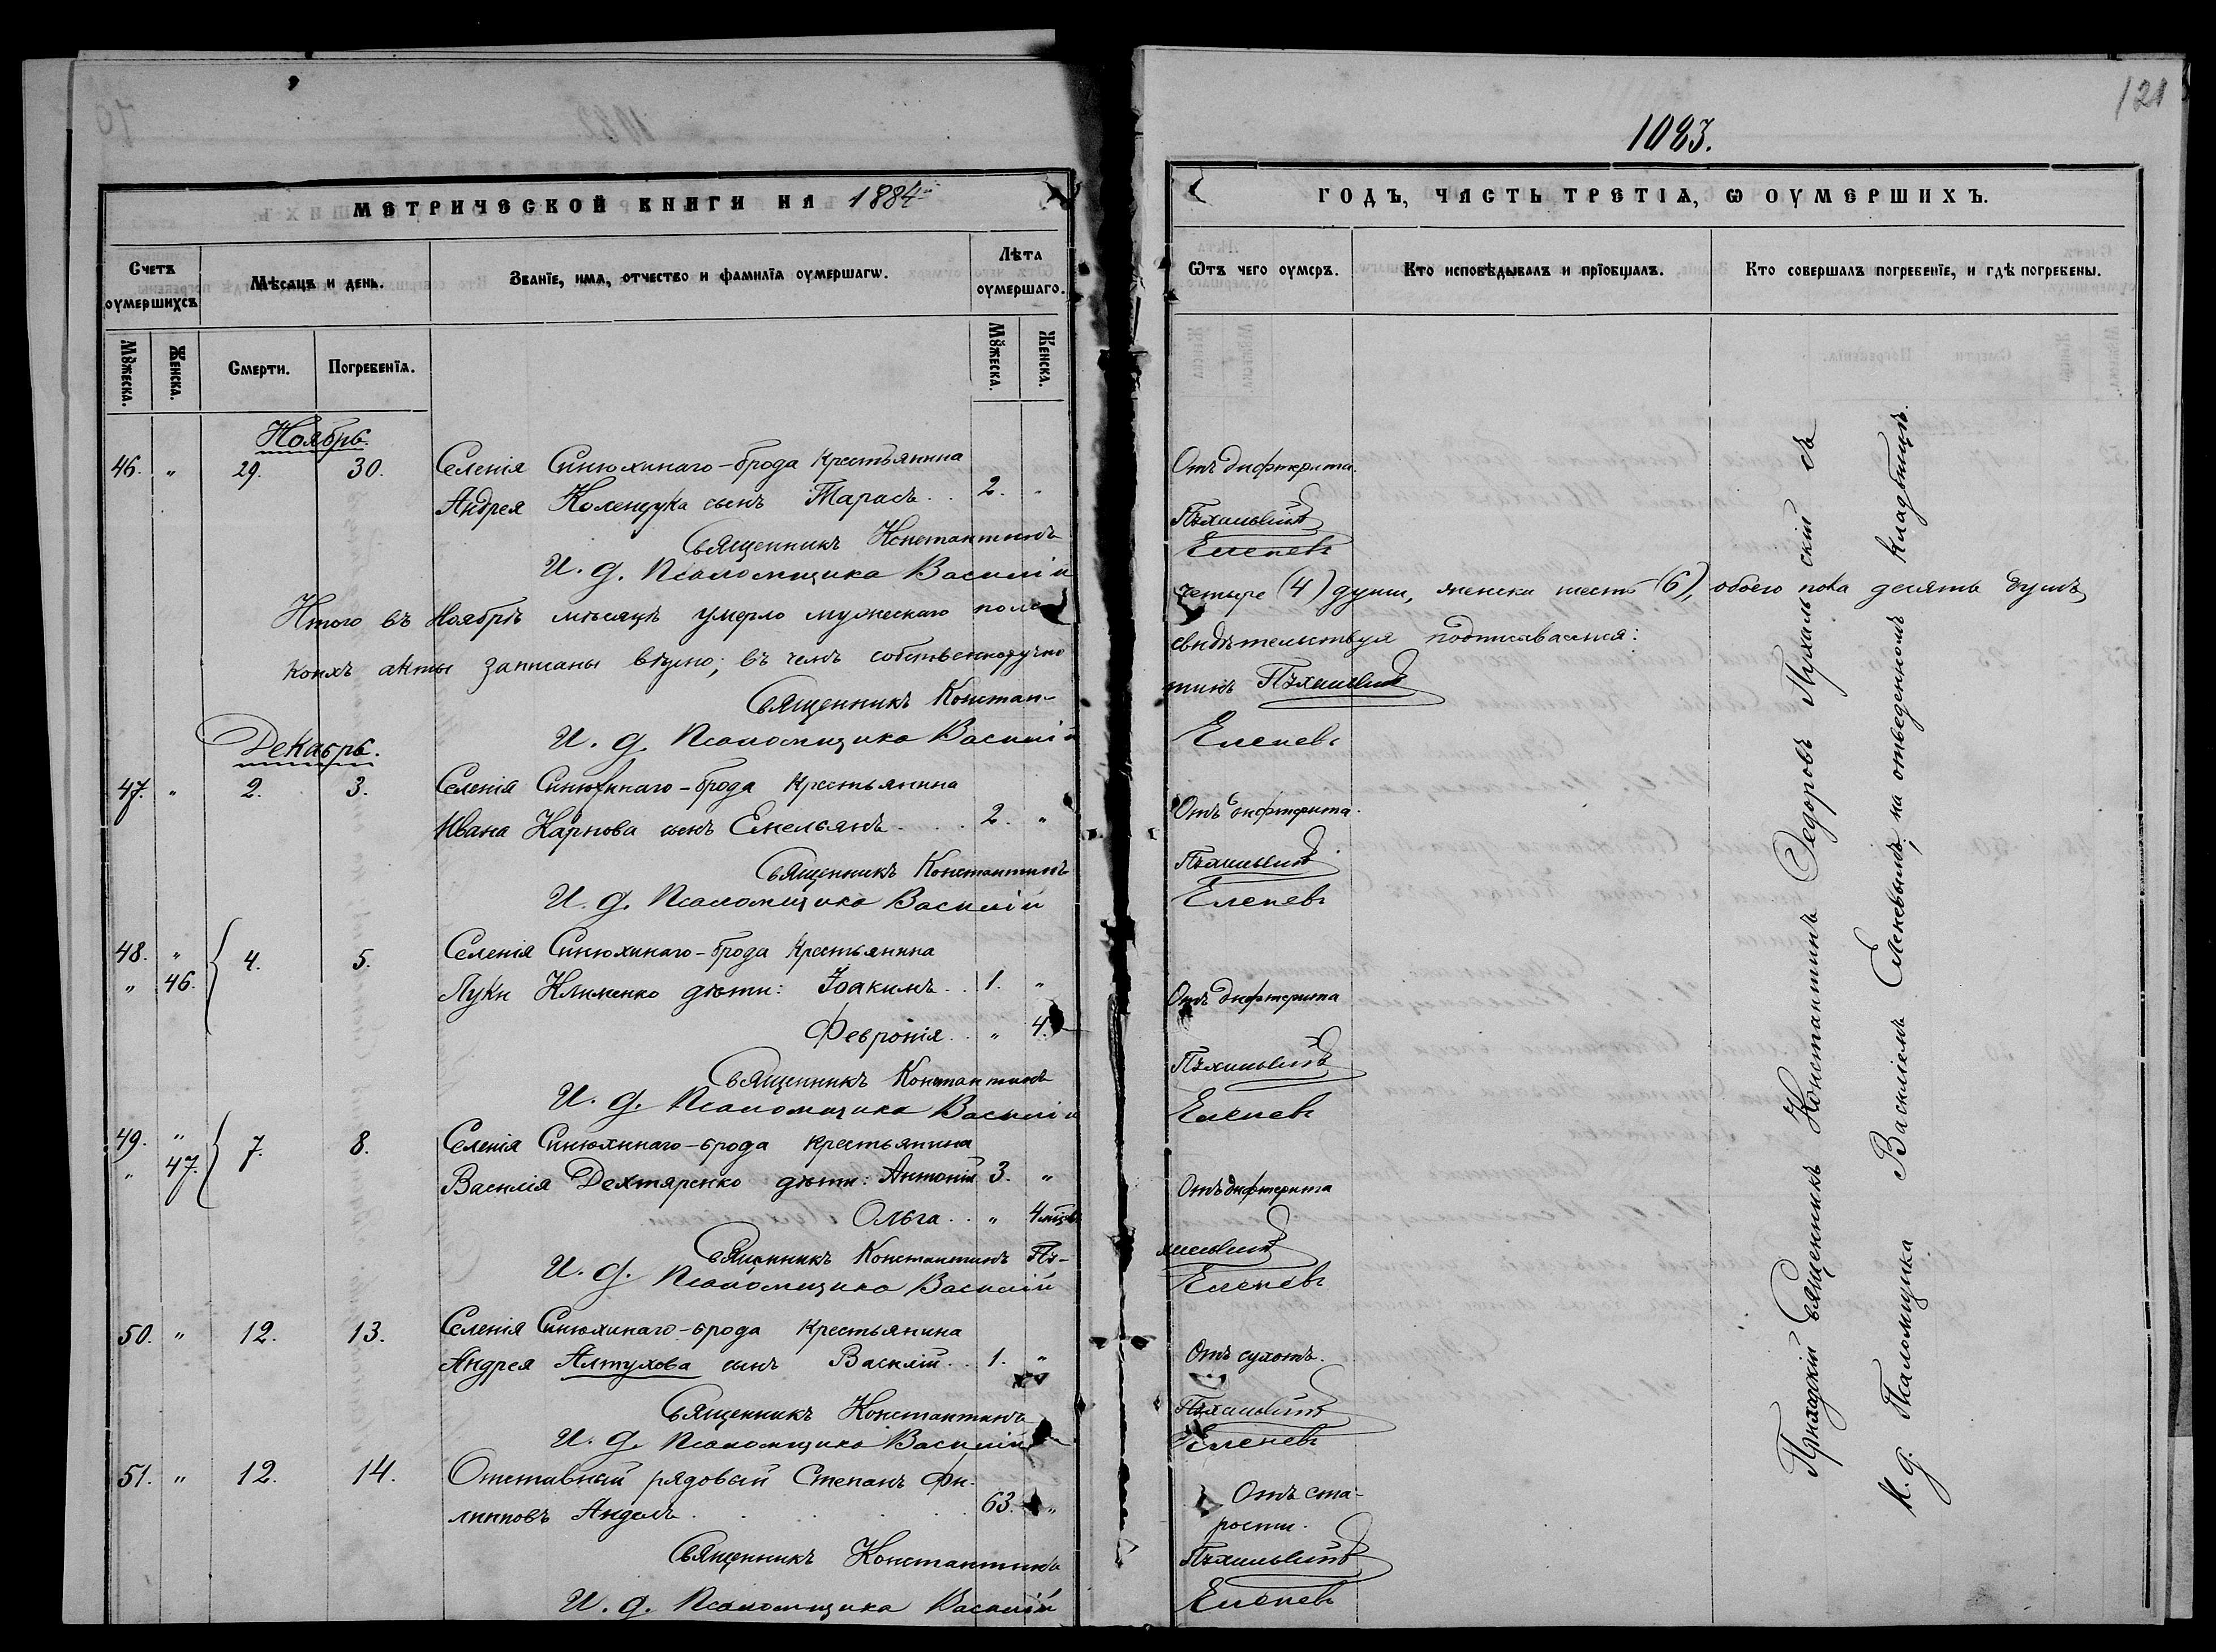 121
1083.
МЕТРИЧЕСКОЙ КНИГИ НА 1884й
ГОДЪ, ЧАСТЬ ТРЕТІѦ, Ѡ ОУМЕРШИХЪ.
Счетъ оумершихъ
Мѣсяцъ и день.
Званіе, имѧ, отчество и фамиліѧ оумершагѡ.
Лѣта оумершаго.
Ѿтъ чего оумеръ.
Кто исповѣдывалъ и пріобщалъ.
Кто совершалъ погребеніе, и гдѣ погребены.
Мꙋжеска.
Женска.
Смерти.
Погребеніѧ.
Мꙋжеска.
Женска.
Ноябрь.
46. " 29. 30. Селенія Синюхинаго-брода крестьянина
Андрея Коленчука сынъ Тарасъ . . 2. " Отъ дифтерита.
Священникъ Константинъ Пѫхальскій
И. д. Псаломщика Василій Еленевъ
Итого въ Ноябрѣ мѣсяцѣ умерло мужескаго пола четыре (4) души, женска шесть (6), обоего пола десять душъ,
коихъ акты записаны вѣрно; въ чемъ собственноручно свидѣтельствуя подписываемся:
Священникъ Константинъ Пѫхальскій
И. д. Псаломщика Василій Еленевъ
Декабрь.
47. " 2. 3. Селенія Синюхинаго-брода крестьянина
Ивана Карпова сынъ Емельянъ . . . 2. " Отъ дифтерита.
Священникъ Константинъ Пѫхальскій
И. д. Псаломщика Василій Еленевъ
48. " 4. 5. Селенія Синюхинаго-брода крестьянина
" 46. Луки Клименко дѣти: Іоакимъ . . 1. " Отъ дифтерита
Февронія . . " 4.
Священникъ Константинъ Пѫхальскій
И. д. Псаломщика Василій Еленевъ
49. " 7. 8. Селенія Синюхинаго-брода крестьянина
" 47. Василія Дехтяренко дѣти: Антоній 3. " Отъ дифтерита
Ольга . . " 4 мѣц.
Священникъ Константинъ Пѫ-хальскій
И. д. Псаломщика Василій Еленевъ
50. " 12. 13. Селенія Синюхинаго-брода крестьянина
Андрея Алтухова сынъ Василій . . 1. " Отъ сухотъ.
Священникъ Константинъ Пѫхальскій
И. д. Псаломщика Василій Еленевъ
51. " 12. 14. Отставный рядовый Степанъ Фи-
липповъ . . . 63. " Отъ ста-
рости.
Священникъ Константинъ Пѫхальскій
И. д. Псаломщика Василій Еленевъ
Приходскій Священникъ Константинъ Ѳедоровъ Пухальскій съ
И. д. Псаломщика Василіемъ Еленевымъ, на отведенномъ кладбищѣ.